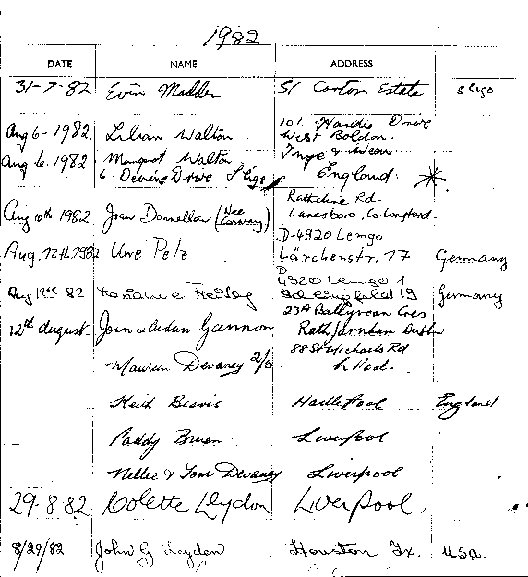 1982
DATE NAME ADDRESS
31-7-82 Madden 51 Estate Sligo
Aug 6-1982 Lilian Walton 101 Hardie Drive
West Boldon
Aug 6. 1982 Margaret Walton Tyne & Wear
6 Devins Drive Sligo England
Aug 10th 1982 Joan Donnellan (Nee Conway) Rathcline Rd.
Lanesboro, Co Longford.
D-4920 Lemgo
Aug. 12th 1982 Uwe Pelz Lärchenstr. 17 Germany
4920 Lemgo 1
Aug 12th 82 19 Germany
23A Ballyroan Cres
12th August Joan & Aidan Gannon Rathfarnham Dublin
88 St Michaels Rd
Maureen Devaney L Pool.
Keith Beavis Hartlepool England
Paddy Liverpool
Nellie & Tom Devaney Liverpool
29-8-82 Colette Lydon Liverpool.
8/29/82 John G Leyden Houston Tx. USA.